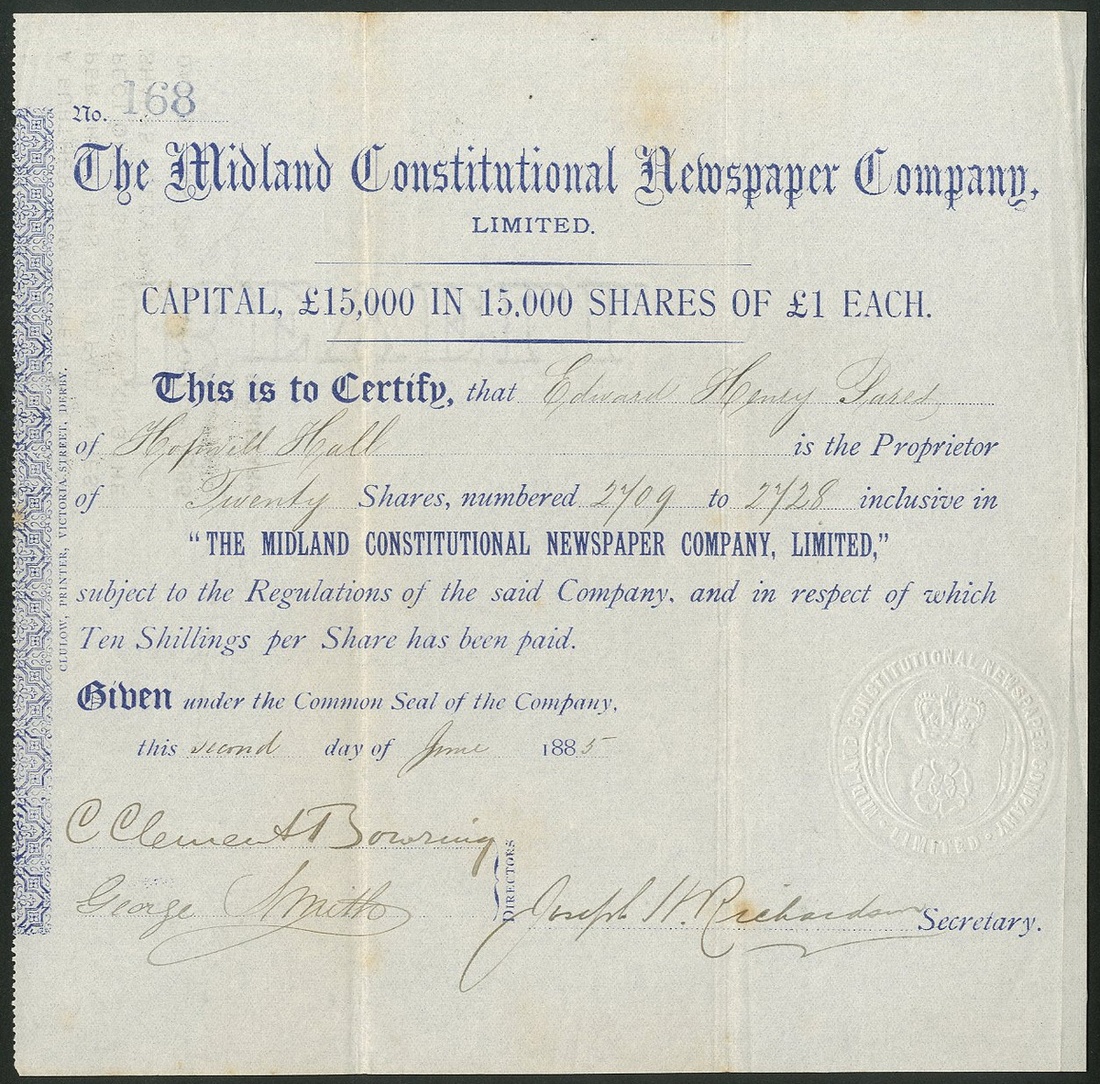 No. 168
The Midland Constitutional Newspaper Company,
LIMITED.
CAPITAL, £15,000 IN 15.000 SHARES OF £1 EACH.
This is to Certify, that Edward Henry Pares
of Hopwell Hall is the Proprietor
of Twenty Shares, numbered 2709 to 2728 inclusive in
"THE MIDLAND CONSTITUTIONAL NEWSPAPER COMPANY, LIMITED,"
subject to the Regulations of the said Company, and in respect of which
Ten Shillings per Share has been paid.
Given under the Common Seal of the Company,
this second day of June 1885
C Clement Bowring
George Smith
DIRECTORS
Joseph H. Richardson Secretary.
CLULOW, PRINTER, VICTORIA STREET, DERBY.
MIDLAND CONSTITUTIONAL NEWSPAPER COMPANY
LIMITED